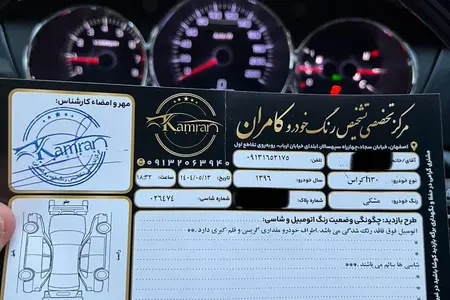 مهر و امضاء کارشناس:
Kamran
۰۹۱۳۲۰۶۳۹۴۰
مرکز تخصصی تشخیص رنگ خودرو کامران
اصفهان، خیابان سجاد، چهارراه سپهسالار، ابتدای خیابان ارباب، روبروی تقاطع اول
Kamran
۰۹۱۳۲۰۶۳۹۴۰
آقای/خانم:
تلفن: ۰۹۱۳۱۶۵۲۱۷۵
تاریخ: ۱۴۰۴/۰۵/۱۳
۱۸:۳۲
نوع خودرو: h۳۰ کراس
سال خودرو: ۱۳۹۶
شماره شاسی: ۰۲۶۴۷۴
رنگ خودرو: مشکی
شماره پلاک:
طرح بازدید: چگونگی وضعیت رنگ اتومبیل و شاسی:
اتومبیل فوق فاقد رنگ شدگی می باشد. اطراف خودرو مقداری گریس و قلم گیری دارد. **
شاسی ها سالم می باشند. ***
جلو